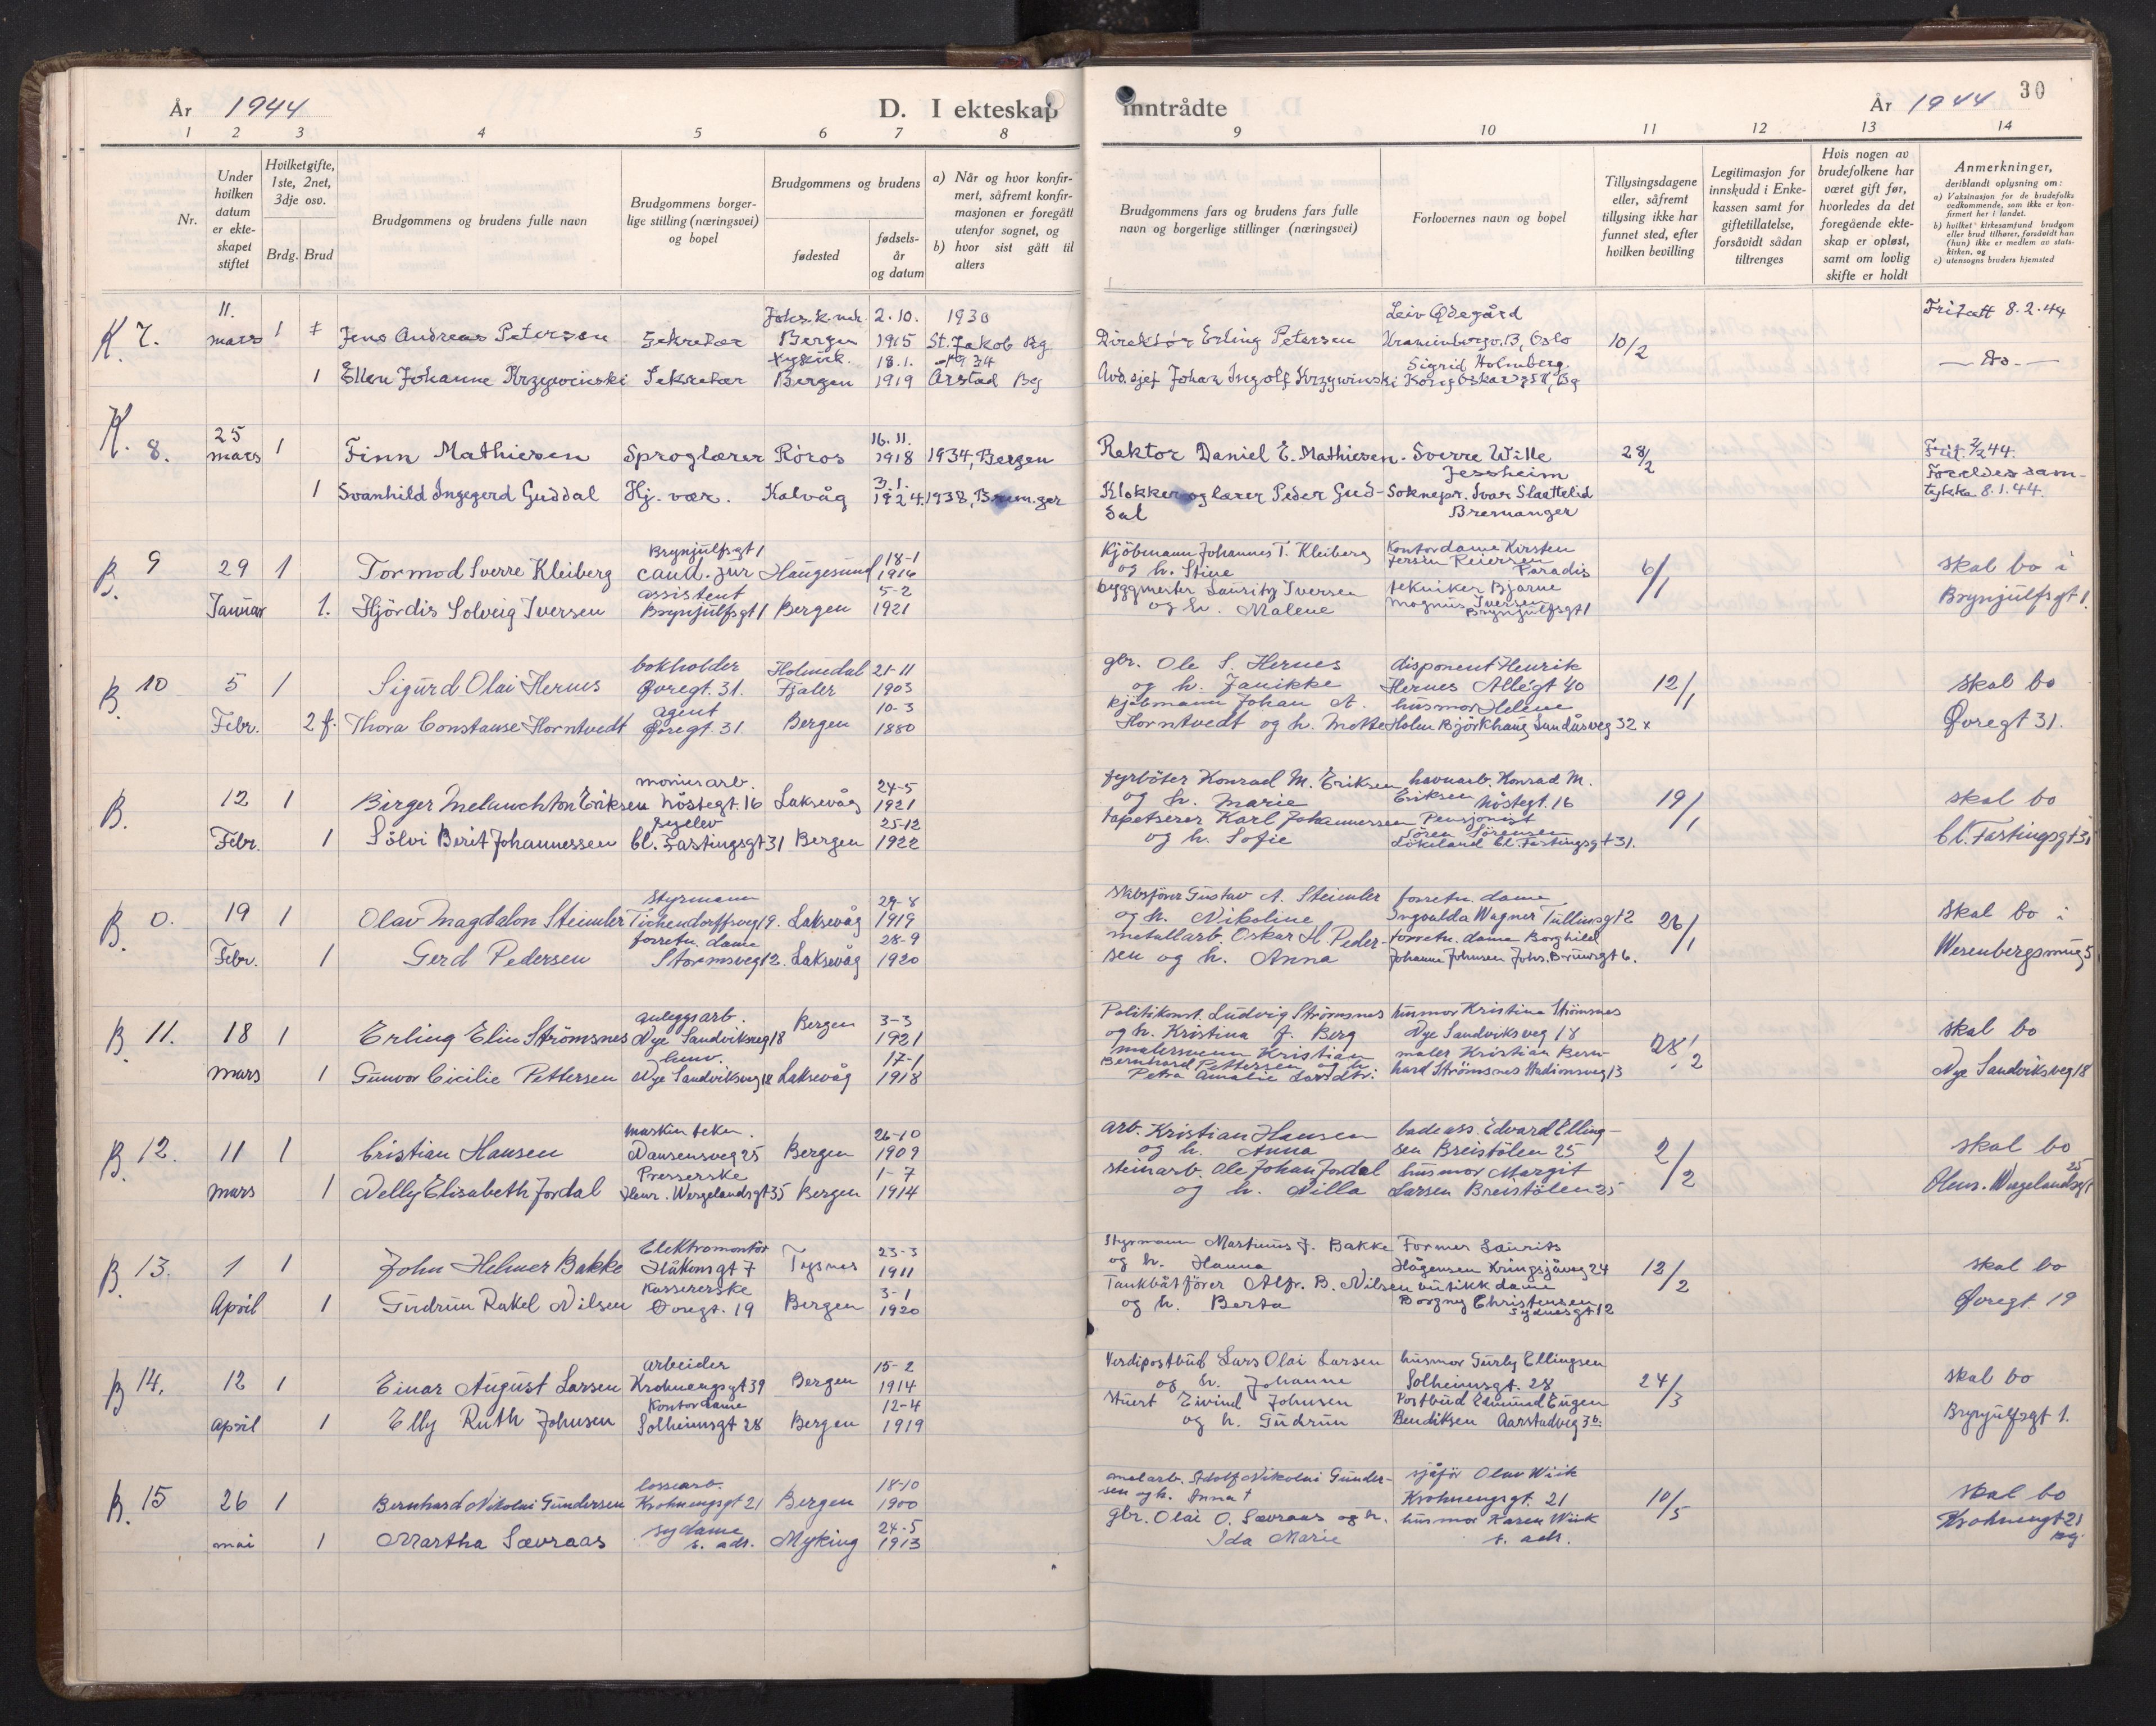 År 1944
D. I ekteskap inntrådte
År 1944
30
1 2 3 4 5 6 7 8 9 10 11 12 13 14
Nr.
Under hvilken datum er ekteskapet stiftet
Hvilket gifte, 1ste, 2net, 3dje osv.
Brdg. Brud
Brudgommens og brudens fulle navn
Brudgommens borgerlige stilling (næringsvei) og bopel
Brudgommens og brudens
fødested
fødselsår og datum
a) Når og hvor konfirmert, såfremt konfirmasjonen er foregått utenfor sognet, og
b) hvor sist gått til alters
Brudgommens fars og brudens fars fulle navn og borgerlige stillinger (næringsvei)
Forlovernes navn og bopel
Tillysingsdagene eller, såfremt tillysing ikke har funnet sted, efter hvilken bevilling
Legitimasjon for innskudd i Enkekassen samt for giftetillatelse, forsåvidt sådan tiltrenges
Hvis nogen av brudefolkene har været gift før, hvorledes da det foregående ekteskap er opløst, samt om lovlig skifte er holdt
Anmerkninger,
deriblandt oplysning om:
a) Vaksinasjon for de brudefolks vedkommende, som ikke er konfirmert her i landet.
b) hvilket kirkesamfund brudgom eller brud tilhører, forsåvidt han (hun) ikke er medlem av statskirken, og
c) utensogns bruders hjemsted
K. 7. 11. mars 1 Jens Andreas Petersen Sekretær Johs.k. Bergen 2.10. 1915 1930 St. Jakob Bg Direktør Erling Petersen Leiv Ødegård Oslo 10/2 Fritatt 8.2.44
1 Ellen Johanne Krzywinski Sekretær Bergen 18.1. 1919 1934 Årstad Bg Avd.sjef Johan Ingolf Krzywinski Sigrid Holmberg Kong Oskarsgt Bg — do. —
K. 8. 25 mars 1 Finn Mathiesen Språglærer Röros 16.11. 1918 1934, Bergen Rektor Daniel E. Mathiesen Sverre Wille Jessheim 28/2 44.
1 Svanhild Ingegerd Guddal Hj. vær. Kalvåg 3.1. 1924. 1938, Brem.ger Klokker og lærer Peder Guddal Soknepr. Ivar Slaattelid Bremanger Foreldes samtykke 8.1.44.
B. 9 29 Januar 1 Tormod Sverre Kleiberg Brynjülfsgt 1 cand. jur Haugesund 18-1 1916 Kjöbmann Johannes T. Kleiberg og h. Stine Kontordame Kirsten Jersin Reiersen Paradis 6/1 skal bo i
1. Hjördis Solveig Iversen assistent Brynjülfsgt 1 Bergen 5-2 1921 byggmester Lauritz Iversen og h. Malene tekniker Bjarne Magnus Iversen Brynjülfsgt 1 Brynjülfsgt 1.
B. 10 5 Febr. 1 Sigurd Olai Hernes bokholder Øvregt. 31. Holmedal Fjaler 21-11 1903 gbr. Ole S. Hernes og h. Janikke disponent Henrik Hernes Allégt 40 12/1 Skal bo
2 f. Thora Constanse Horntvedt agent Øvregt. 31. Bergen 10-3 1880 kjöbmann Johan A. Horntvedt og h. Mette hüsmor Helene Holm Björkhaug Landåsveg 32 x Øvregt 31.
B. 12 Febr. 1 Birger Melanchton Eriksen Nöstegt. 16 Laksevåg 24-5 1921 fyrböter Konrad M. Eriksen og h. Marie havnearb. Konrad M. Eriksen Nöstegt. 16 19/1 skal bo
1 Sölvi Berit Johannessen syelev Cl. Fastingsgt 31 Bergen 25-12 1922 tapetserer Karl Johannessen og h. Sofie Pensjonist Sören Sörensen Lökeland Cl. Fastingsgt 31. Cl. Fastingsgt 31
B. 0. 19 Febr. 1 Olav Magdalon Steimler Styrmann Tichendorffsveg 19. Laksevåg 29-8 1919 Skibsförer Gustav A. Steimler og h. Nikoline forretn. dame Ingvalda Wagner Tullinsgt 2 26/1 Skal bo i
1 Gerd Pedersen forretn. dame Stormsveg 12. Laksevåg 28-9 1920 metallarb. Oskar H. Pedersen og h. Anna forretn. dame Borghild Johanne Johnsen Johs. Brunsgt 6. Wesenbergsmug 5
B. 11. 18 mars 1 Erling Elin Strömsnes anleggsarb. Nye Sandviksveg 18 Bergen 3-3 1921 Politikonst. Ludvig Strömsnes og h. Kristina f. Berg hüsmor Kristina Strömsnes Nye Sandviksveg 18 28/2 skal bo
1 Gunvor Cicilie Pettersen Nye Sandviksveg 18 Laksevåg 17-1 1918 malersvenn Kristian Bernhard Pettersen og h. Petra Amalie Larsdtr. maler Kristian Bernhard Strömsnes Stadionsveg 13 Nye Sandviksveg 18
B. 12. 11 mars 1 Cristian Hansen maskin tekn. Nansensveg 25 Bergen 26-10 1909 arb. Kristian Hansen og h. Anna badeass. Edvard Ellingsen Breistölen 25 2/2 skal bo
1 Nelly Elisabeth Jordal Presserske Henr. Wergelandsgt 35 Bergen 1-7 1914 steinarb. Ole Johan Jordal og h. Nilla hüsmor Margit Larsen Breistölen 25 Henr. Wergelandsgt 25
B. 13. 1 April 1 John Helmer Bakke Elektromontör Håkonsgt 7 Tysnes 23-3 1911 Styrmann Martinus J. Bakke og h. Hanna Former Laurits Hågensen Kringsjåveg 24 12/2 skal bo
1 Gudrun Rakel Nilsen Kassererske Øvregt. 19 Bergen 3-1 1920 Tankbåtförer Alfr. B. Nilsen og h. Berta butikkdame Borgny Christensen Sydnesgt 12 Øvregt. 19
B 14. 12 april 1 Einar August Larsen arbeider Krohnengsgt 39 Bergen 15-2 1914 Verdipostbud Lars Olai Larsen og h. Johanne hüsmor Gurly Ellingsen Solheimsgt. 28 24/3 skal bo
1 Elly Ruth Johnsen Kontordame Solheimsgt 28 Bergen 12-4 1919 Stuert Eivind Johnsen og h. Gudrun Postbud Edmund Eugen Bendiksen Aarstadveg 3b. Brynjulfsgt 1.
B. 15 26 mai 1 Bernhard Nikolai Gundersen lossearb. Krohnengsgt 21 Bergen 18-10 1900 Adolf Nikolai Gundersen og h. Anna † sjåför Olav Wiik Krohnengsgt. 21 10/5 skal bo
1 Martha Sævraas sydame s. adr. Myking 24-5 1913 gbr. Olai O. Sævraas og h. Ida Marie hüsmor Karen Wiik s. adr. Krohnengt 21 Bg.